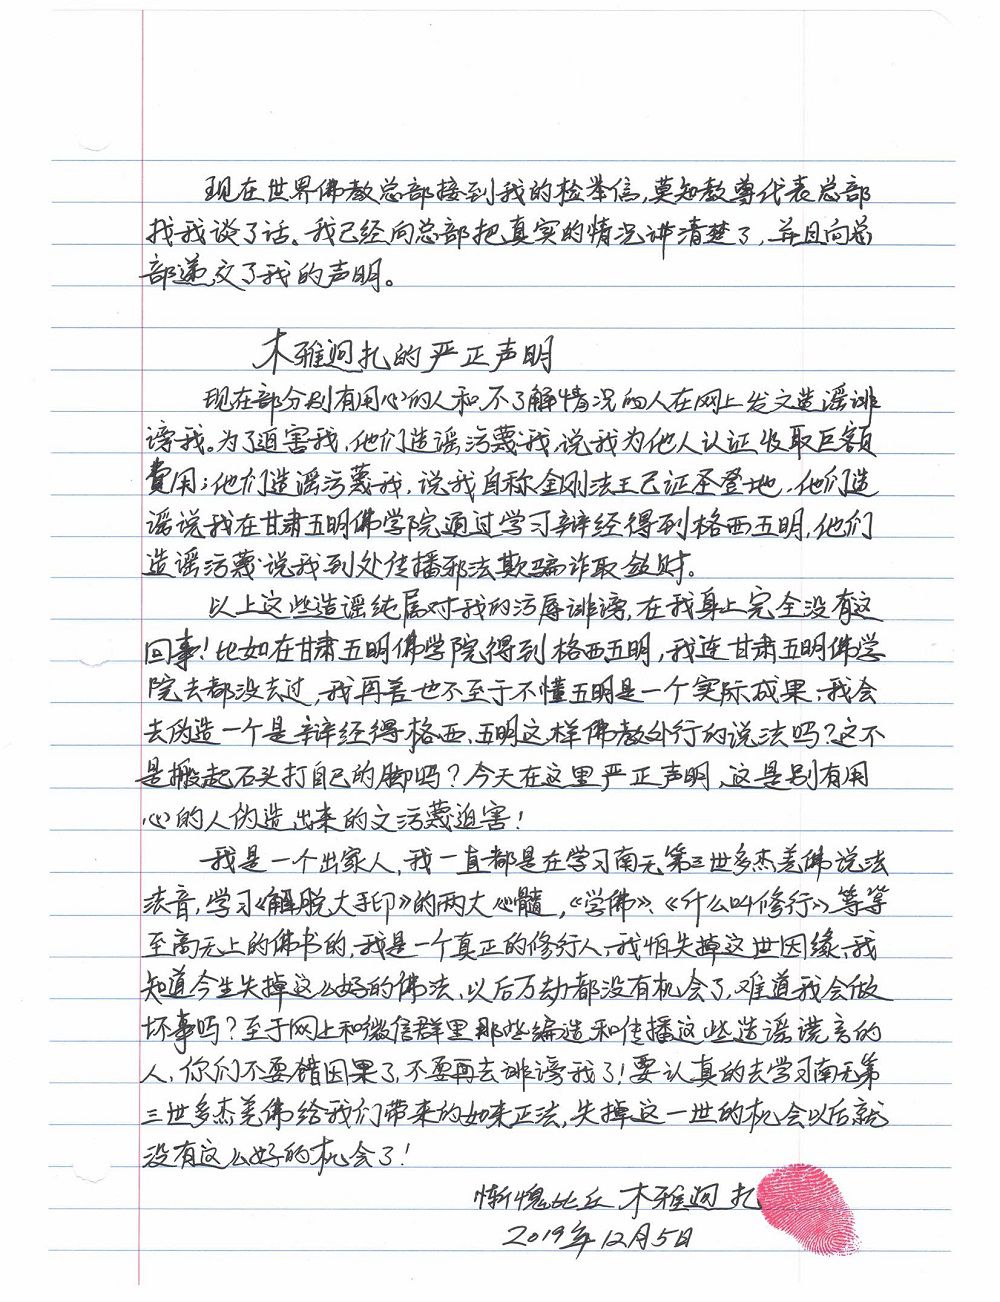 现在世界佛教总部接到我的检举信,莫知教尊代表总部
找我谈了话。我已经向总部把真实的情况讲清楚了,并且向总
部递交了我的声明。
木雅迥扎的严正声明
现在部分别有用心的人和不了解情况的人在网上发文造谣诽
谤我。为了迫害我,他们造谣污蔑我,说我为他人认证收取巨额
費用;他们造谣污蔑我,说我自称金刚法王已证圣登地,他们造
谣说我在甘肃五明佛学院通过学习辩经得到格西五明,他们
造谣污蔑说我到处传播邪法欺骗诈取敛财。
以上这些造谣纯属对我的污辱诽谤,在我身上完全没有这
回事!比如在甘肃五明佛学院得到格西五明,我连甘肃五明佛学
院去都没去过,我再差也不至于不懂五明是一个实际成果,我会
去伪造一个是辩经得格西、五明这样佛教外行的说法吗?这不
是搬起石头打自己的脚吗?今天在这里严正声明,这是别有用
心的人伪造出来的文污蔑迫害!
我是一个出家人,我一直都是在学习南无第三世多杰羌佛说法
法音,学习《解脱大手印》的两大心髓,《学佛》、《什么叫修行》等等
至高无上的佛书的,我是一个真正的修行人,我怕失掉这世因缘,我
知道今生失掉这么好的佛法,以后万劫都没有机会了,难道我会做
坏事吗?至于网上和微信群里那些编造和传播这些造谣谎言的
人,你们不要错因果了,不要再去诽谤我了!要认真的去学习南无第
三世多杰羌佛给我们带来的如来正法,失掉这一世的机会以后就
没有这么好的机会了!
惭愧比丘 木雅迥扎
2019年12月5日